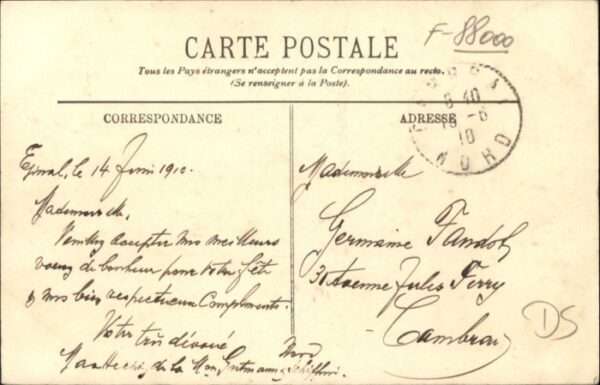 F-88000
CARTE POSTALE
Tous les Pays étrangers n'acceptent pas la Correspondance au recto.
(Se renseigner à la Poste).
CORRESPONDANCE
ADRESSE
8 40
15 -6
10
NORD
Epinal, le 14 Juin 1910.
Mademoiselle,
Veuillez accepter mes meilleurs
voeux de bonheur pour votre fête
& mes bien respectueux Compliments.
Votre très dévoué
de la Mon
Mademoiselle
Germaine
Avenue Jules Ferry
Cambrai
Nord
DS